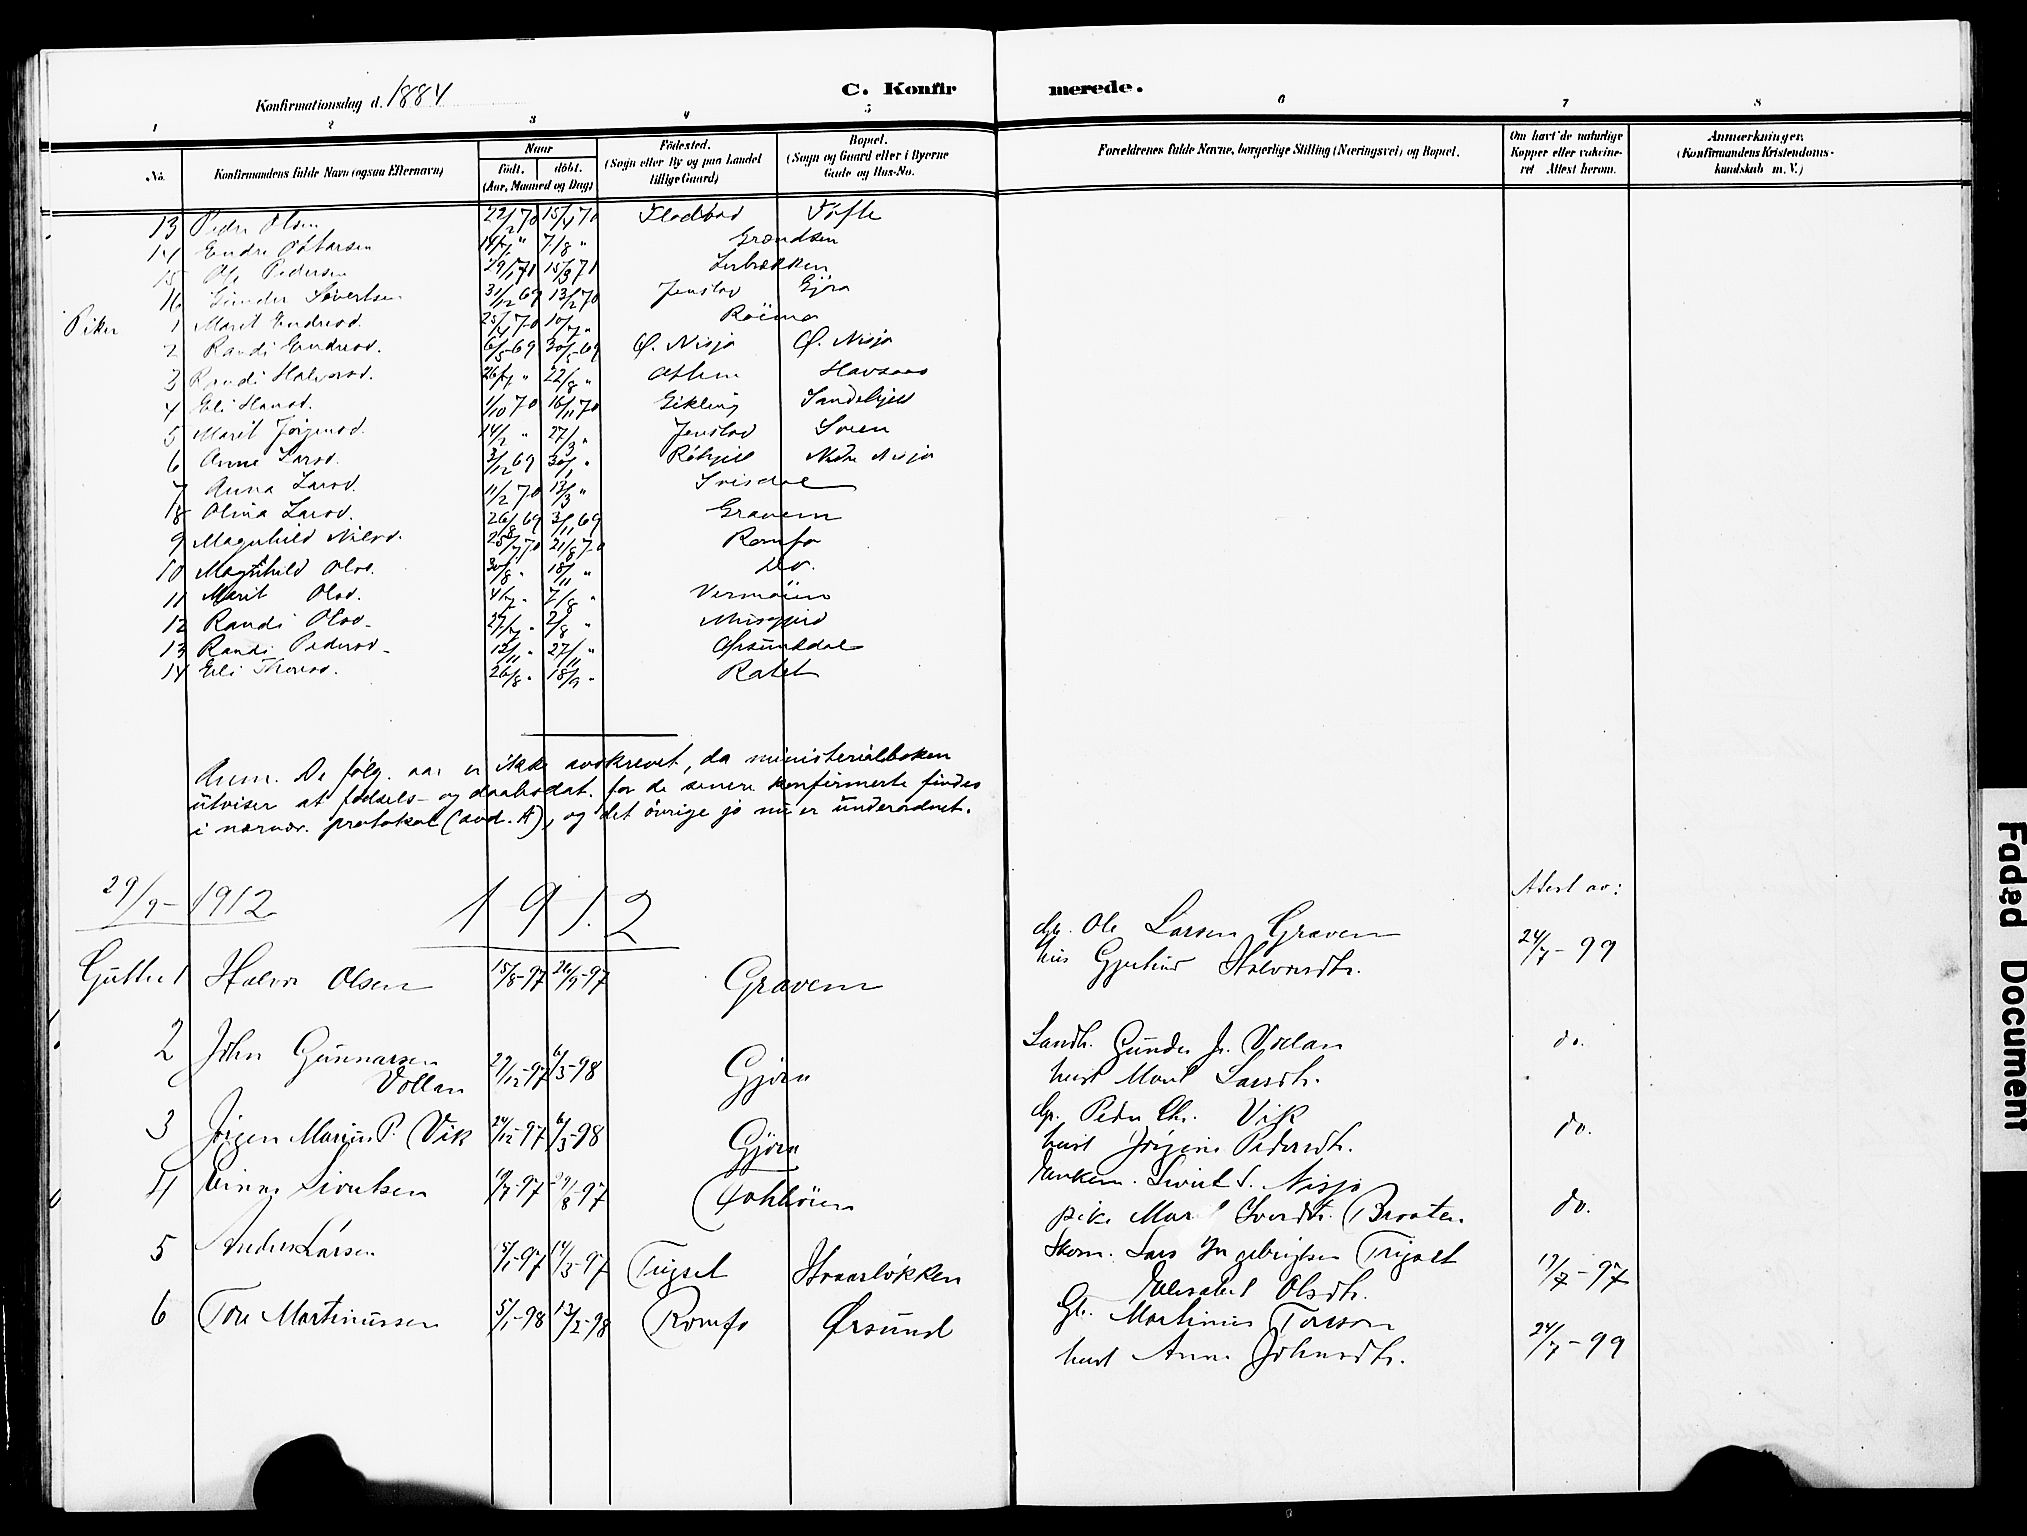 Konfirmationsdag d. 1884
C. Konfirmerede.
1 2 3 4 5 6 7 8
No. Konfirmandens fulde Navn (ogsaa Efternavn) Naar født. døbt. (Aar, Maaned og Dag) Fødested. (Sogn eller By og paa Landet tillige Gaard) Bopæl. (Sogn og Gaard eller i Byerne Gade og Hus-No. Forældrenes fulde Navne, borgerlige Stilling (Næringsvei) og Bopæl. Om havt de naturlige Kopper eller vakcineret Attest herom. Anmærkninger. (Konfirmandens Kristendomskundskab m. V.)
13 Peder Olsen 22/2 70 15/4 70 Flodbad Tofte
14 Endre 14/7 " 7/8 " Grændsen
15 Ole Pedersen 29/1 70 15/3 70
16 Gunder Sivertsen 31/12 69 13/2 70 Jenstad Gjöra
Piker 1 Marit Endresd. 25/4 70 10/7 "
2 Randi Endresd. 6/5-69 30/5-69 Ø. Nisja Ø. Nisja
3 Randi Halvorsd. 26/7 " 22/8 " Havsaas
4 Eli Hansd. 1/10 70 16/11 70 Eikling
5 Marit Jörgensd. 14/2 " 27/3 " Jenstad Sveen
6 Anne Larsd. 3/12 69 30/1 " Nedre Nisja
7 Anna Larsd. 11/2 70 13/3 " Svisdal
8 Olina Larsd. 26/8 69 3/11 69 Gravem
9 Magnhild Nilsd. 25/7 70 21/8 70 Romfo
10 Magnhild Olsd. 30/8 " 18/11 " do.
11 Marit Olsd. 4/7 " 7/8 " Vermöien
12 Randi Olsd. 2/8 " Musgjerd
13 Randi Pedersd. 12/11 " 27/11 " Grsundal
14 Eli Thoresd. 26/8 " 18/9 "
Anm. De følg. aar er ikke avskrevet, da ministerialboken
utviser at födsels- og daabsdat. for de senere konfirmerte findes
i nærvær. protokol (avd. A), og det övrige jo nu er underordnet.
29/9- 1912 1912 Atest av:
Gutter 1 Halvor Olsen 15/8-97 26/9-97 Gravem
Gb. Ole Larsen Gravem
Gjertrud Halvorsdtr. 24/7-99
2 John Gunnarsen
Vollan 29/12-97 6/3-98 Gjöra
Gunder J. Vollan do.
hust Marit Larsdtr.
3 Jörgen Marius P. Vik 24/12-97 6/3-98 Gjöra
Gb. Peder Chr. Vik do.
hust Jörgine Pedersdtr.
4 Sivertsen 10/7-97 29/8-97
Enkem. Sivert S. Nisja
pike Marit Braaten do.
5 Anders Larsen 15/1-97 14/3-97 Trysel Hvaarløkken
Lars Ingebrigtsen Trysel
Elisabet Olsdtr. 17/7-97
6 Tore Martinussen 5/1-98 13/2-98 Romfo Ørsund
Gb. Martinus Toresen
hust Anne Johnsdtr. 24/7-99
Faded Document